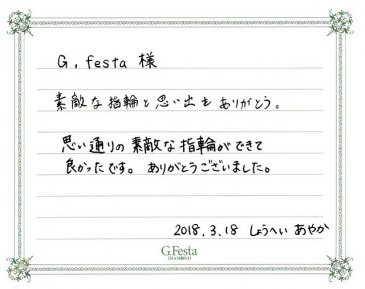 G.festa 様
素敵な指輪と思い出をありがとう。
思い通りの素敵な指輪ができて
良かったです。ありがとうございました。
2018.3.18 しょうへい あやか
G.Festa
DIAMOND